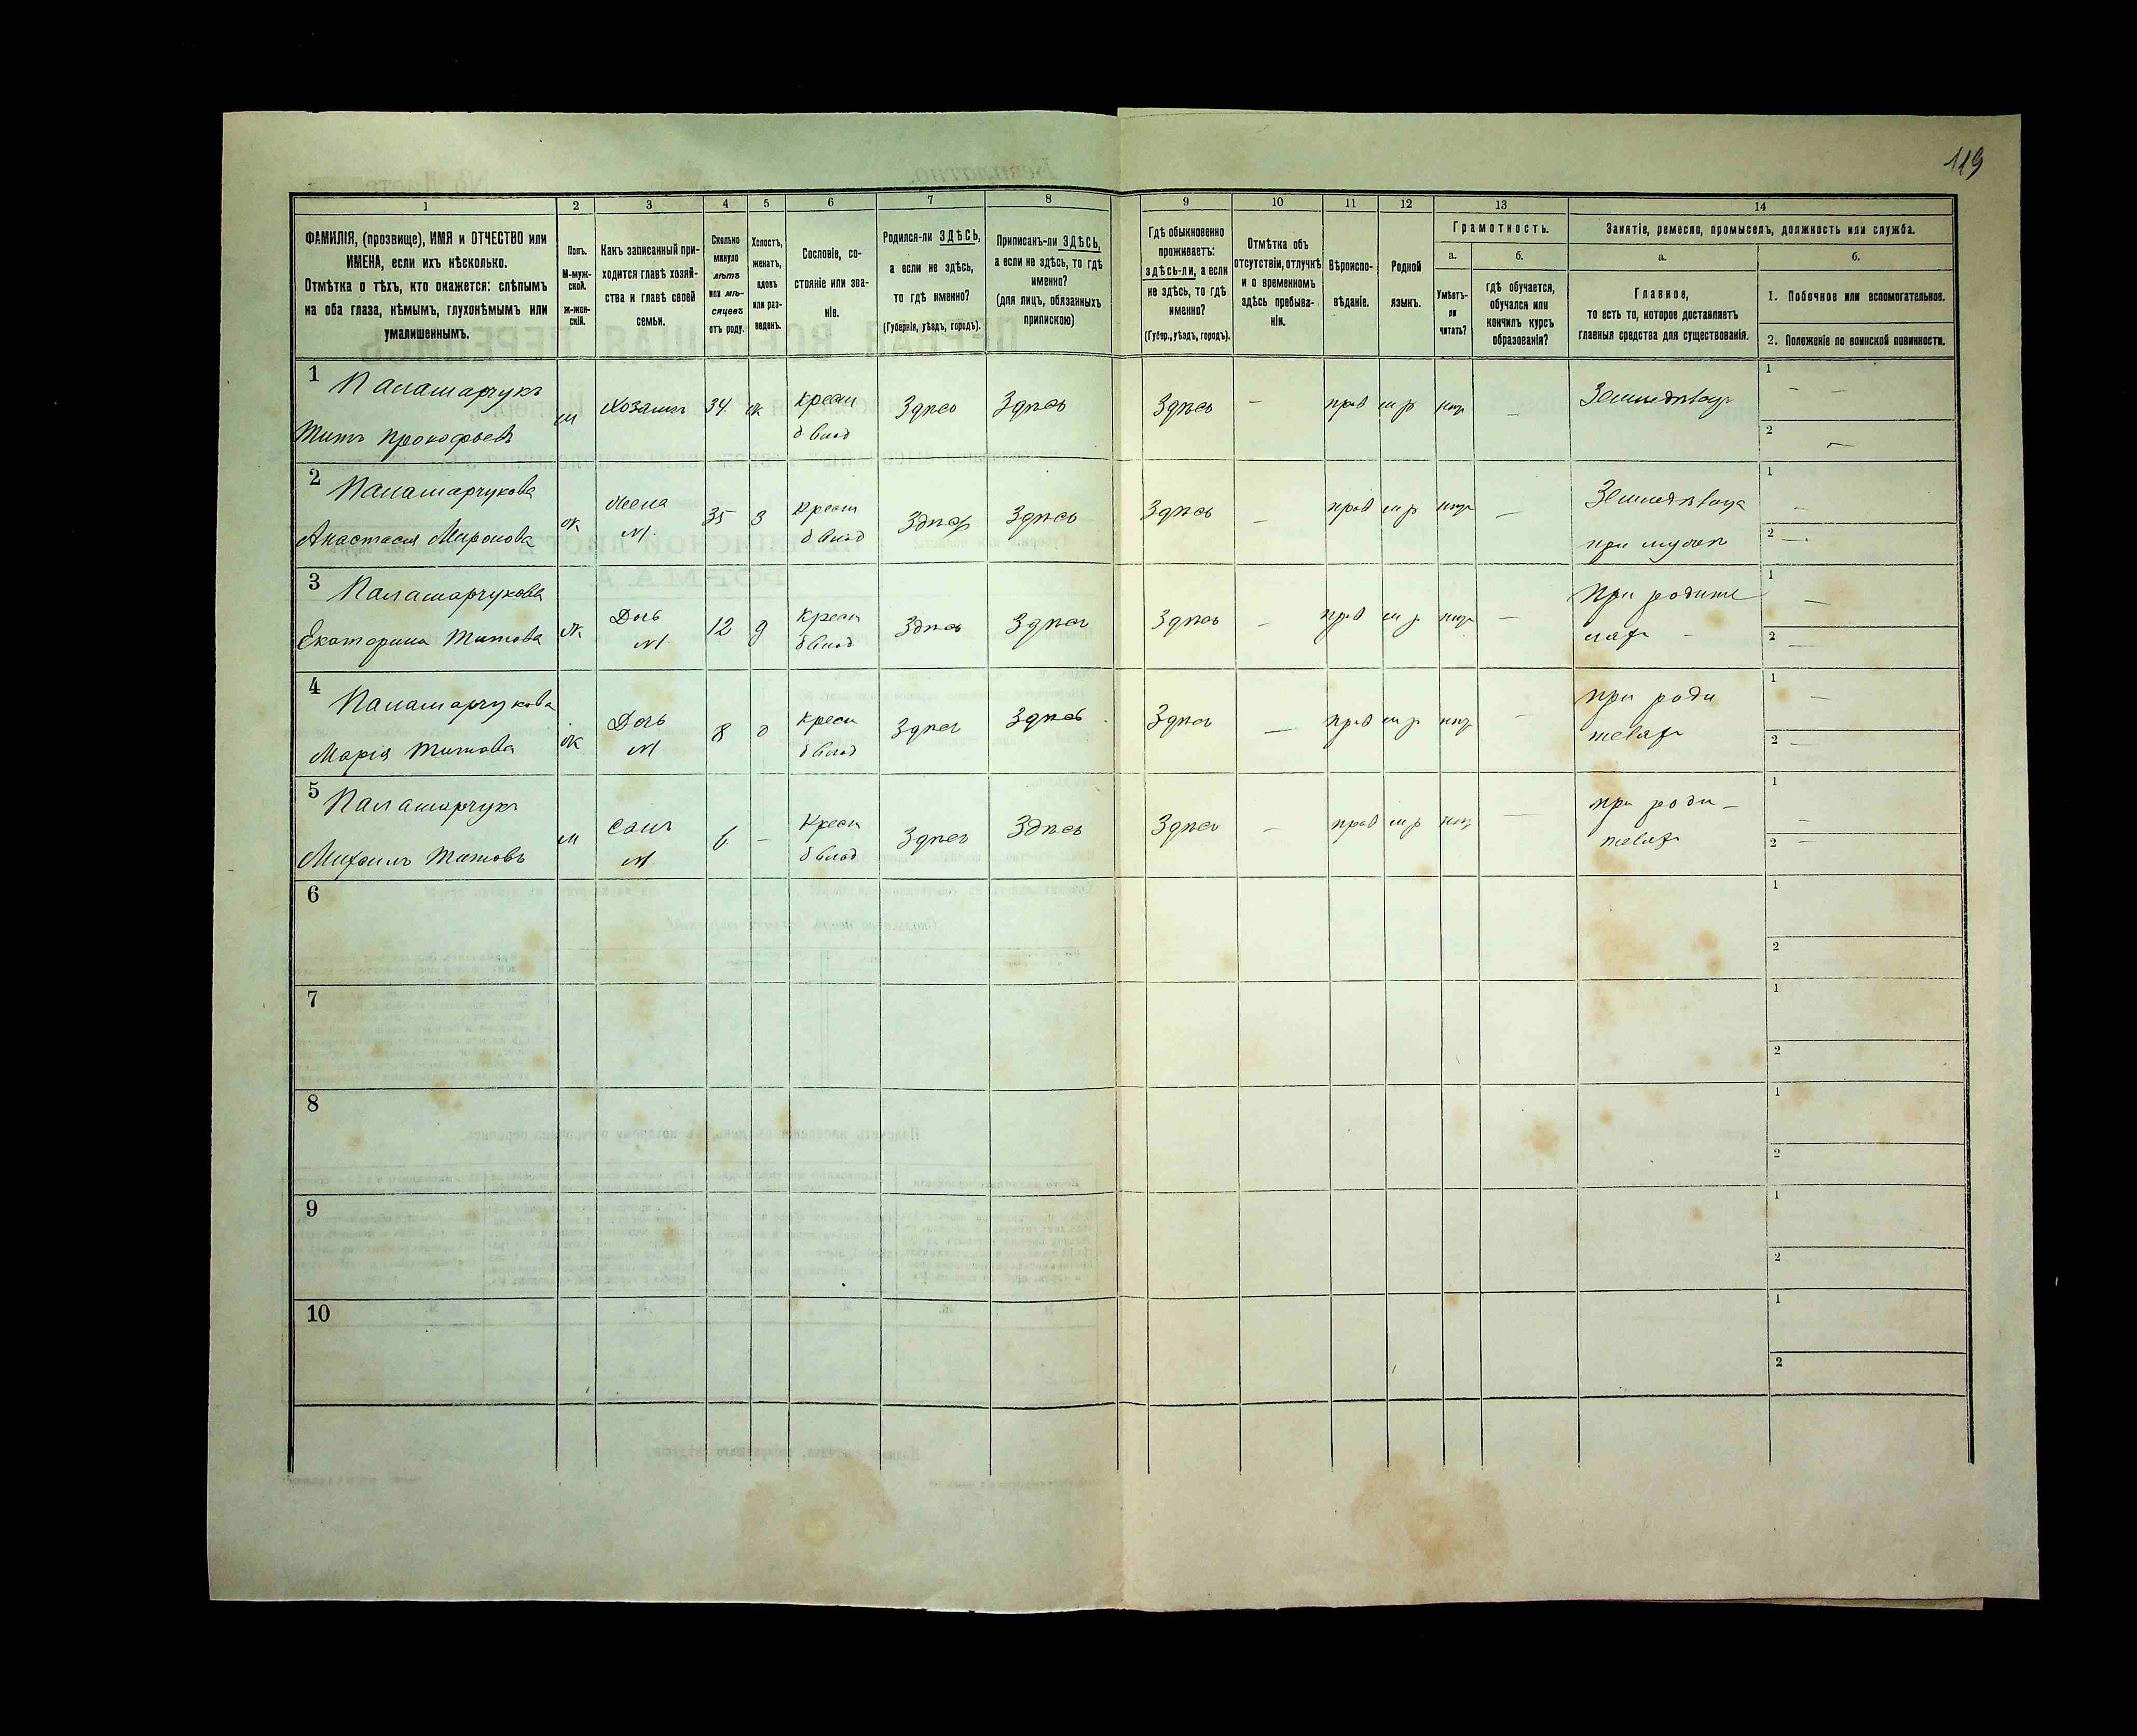 119
1 2 3 4 5 6 7 8 9 10 11 12 13 14
ФАМИЛІЯ, (прозвище), ИМЯ и ОТЧЕСТВО или
ИМЕНА, если ихъ нѣсколько.
Отмѣтка о тѣхъ, кто окажется: слѣпымъ
на оба глаза, нѣмымъ, глухонѣмымъ или
умалишеннымъ.
Полъ.
М-муж-
ской.
ж-жен-
скій.
Какъ записанный при-
ходится главѣ хозяй-
ства и главѣ своей
семьи.
Сколько
минуло
лѣтъ
или мѣ-
сяцевъ
отъ роду.
Холостъ,
женатъ,
вдовъ
или раз-
веденъ.
Сословіе, со-
стояніе или зва-
ніе.
Родился-ли ЗДѢСЬ,
а если не здѣсь,
то гдѣ именно?
(Губернія, уѣздъ, городъ).
Приписанъ-ли ЗДѢСЬ,
а если не здѣсь, то гдѣ
именно?
(для лицъ, обязанныхъ
припискою)
Гдѣ обыкновенно
проживаетъ:
здѣсь-ли, а если
не здѣсь, то гдѣ
именно?
(Губер., уѣздъ, городъ).
Отмѣтка объ
отсутствіи, отлучкѣ
и о временномъ
здѣсь пребыва-
ніи.
Вѣроиспо-
вѣданіе.
Родной
языкъ.
Грамотность.
а.
Умѣетъ-
ли
читать?
б.
гдѣ обучается,
обучался или
кончилъ курсъ
образованія?
Занятіе, ремесло, промыселъ, должность или служба.
а.
Главное,
то есть то, которое доставляетъ
главныя средства для существованія.
б.
1. Побочное или вспомогательное.
2. Положеніе по воинской повинности.
1 Паламарчукъ
Титъ Прокофьевъ
м Хозяинъ 34 ж Крест Здѣсь Здѣсь Здѣсь — прав м р нгр — Земледѣлец 1 —
б влад
2 —
2 Паламарчукова
Анастасія Миронова
ж Жена 35 З Крест Здѣсь Здѣсь Здѣсь — прав м р нгр — Земледѣлица 1 —
М. б влад
при мужѣ 2 —
3 Паламарчукова
Екатерина Титова
ж Дочь 12 д Крест Здѣсь Здѣсь Здѣсь — прав м р нгр — При родите 1 —
М б влад
ляхъ 2 —
4 Паламарчукова
Марія Титова
ж Дочь 8 д Крест Здѣсь Здѣсь Здѣсь — прав м р нгр — при роди 1 —
М б влад
телях 2 —
5 Паламарчукъ
Михаилъ Титовъ
м Сынъ 6 — Крест Здѣсь Здѣсь Здѣсь — прав м р нгр — при роди- 1 —
М б влад
телях 2 —
6 1
2
7 1
2
8 1
2
9 1
2
10 1
2